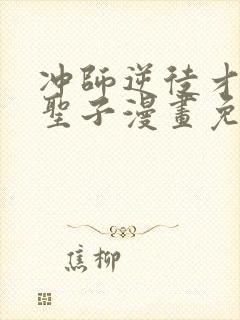 冲師逆徒才
聖子漫畫免
焦柳